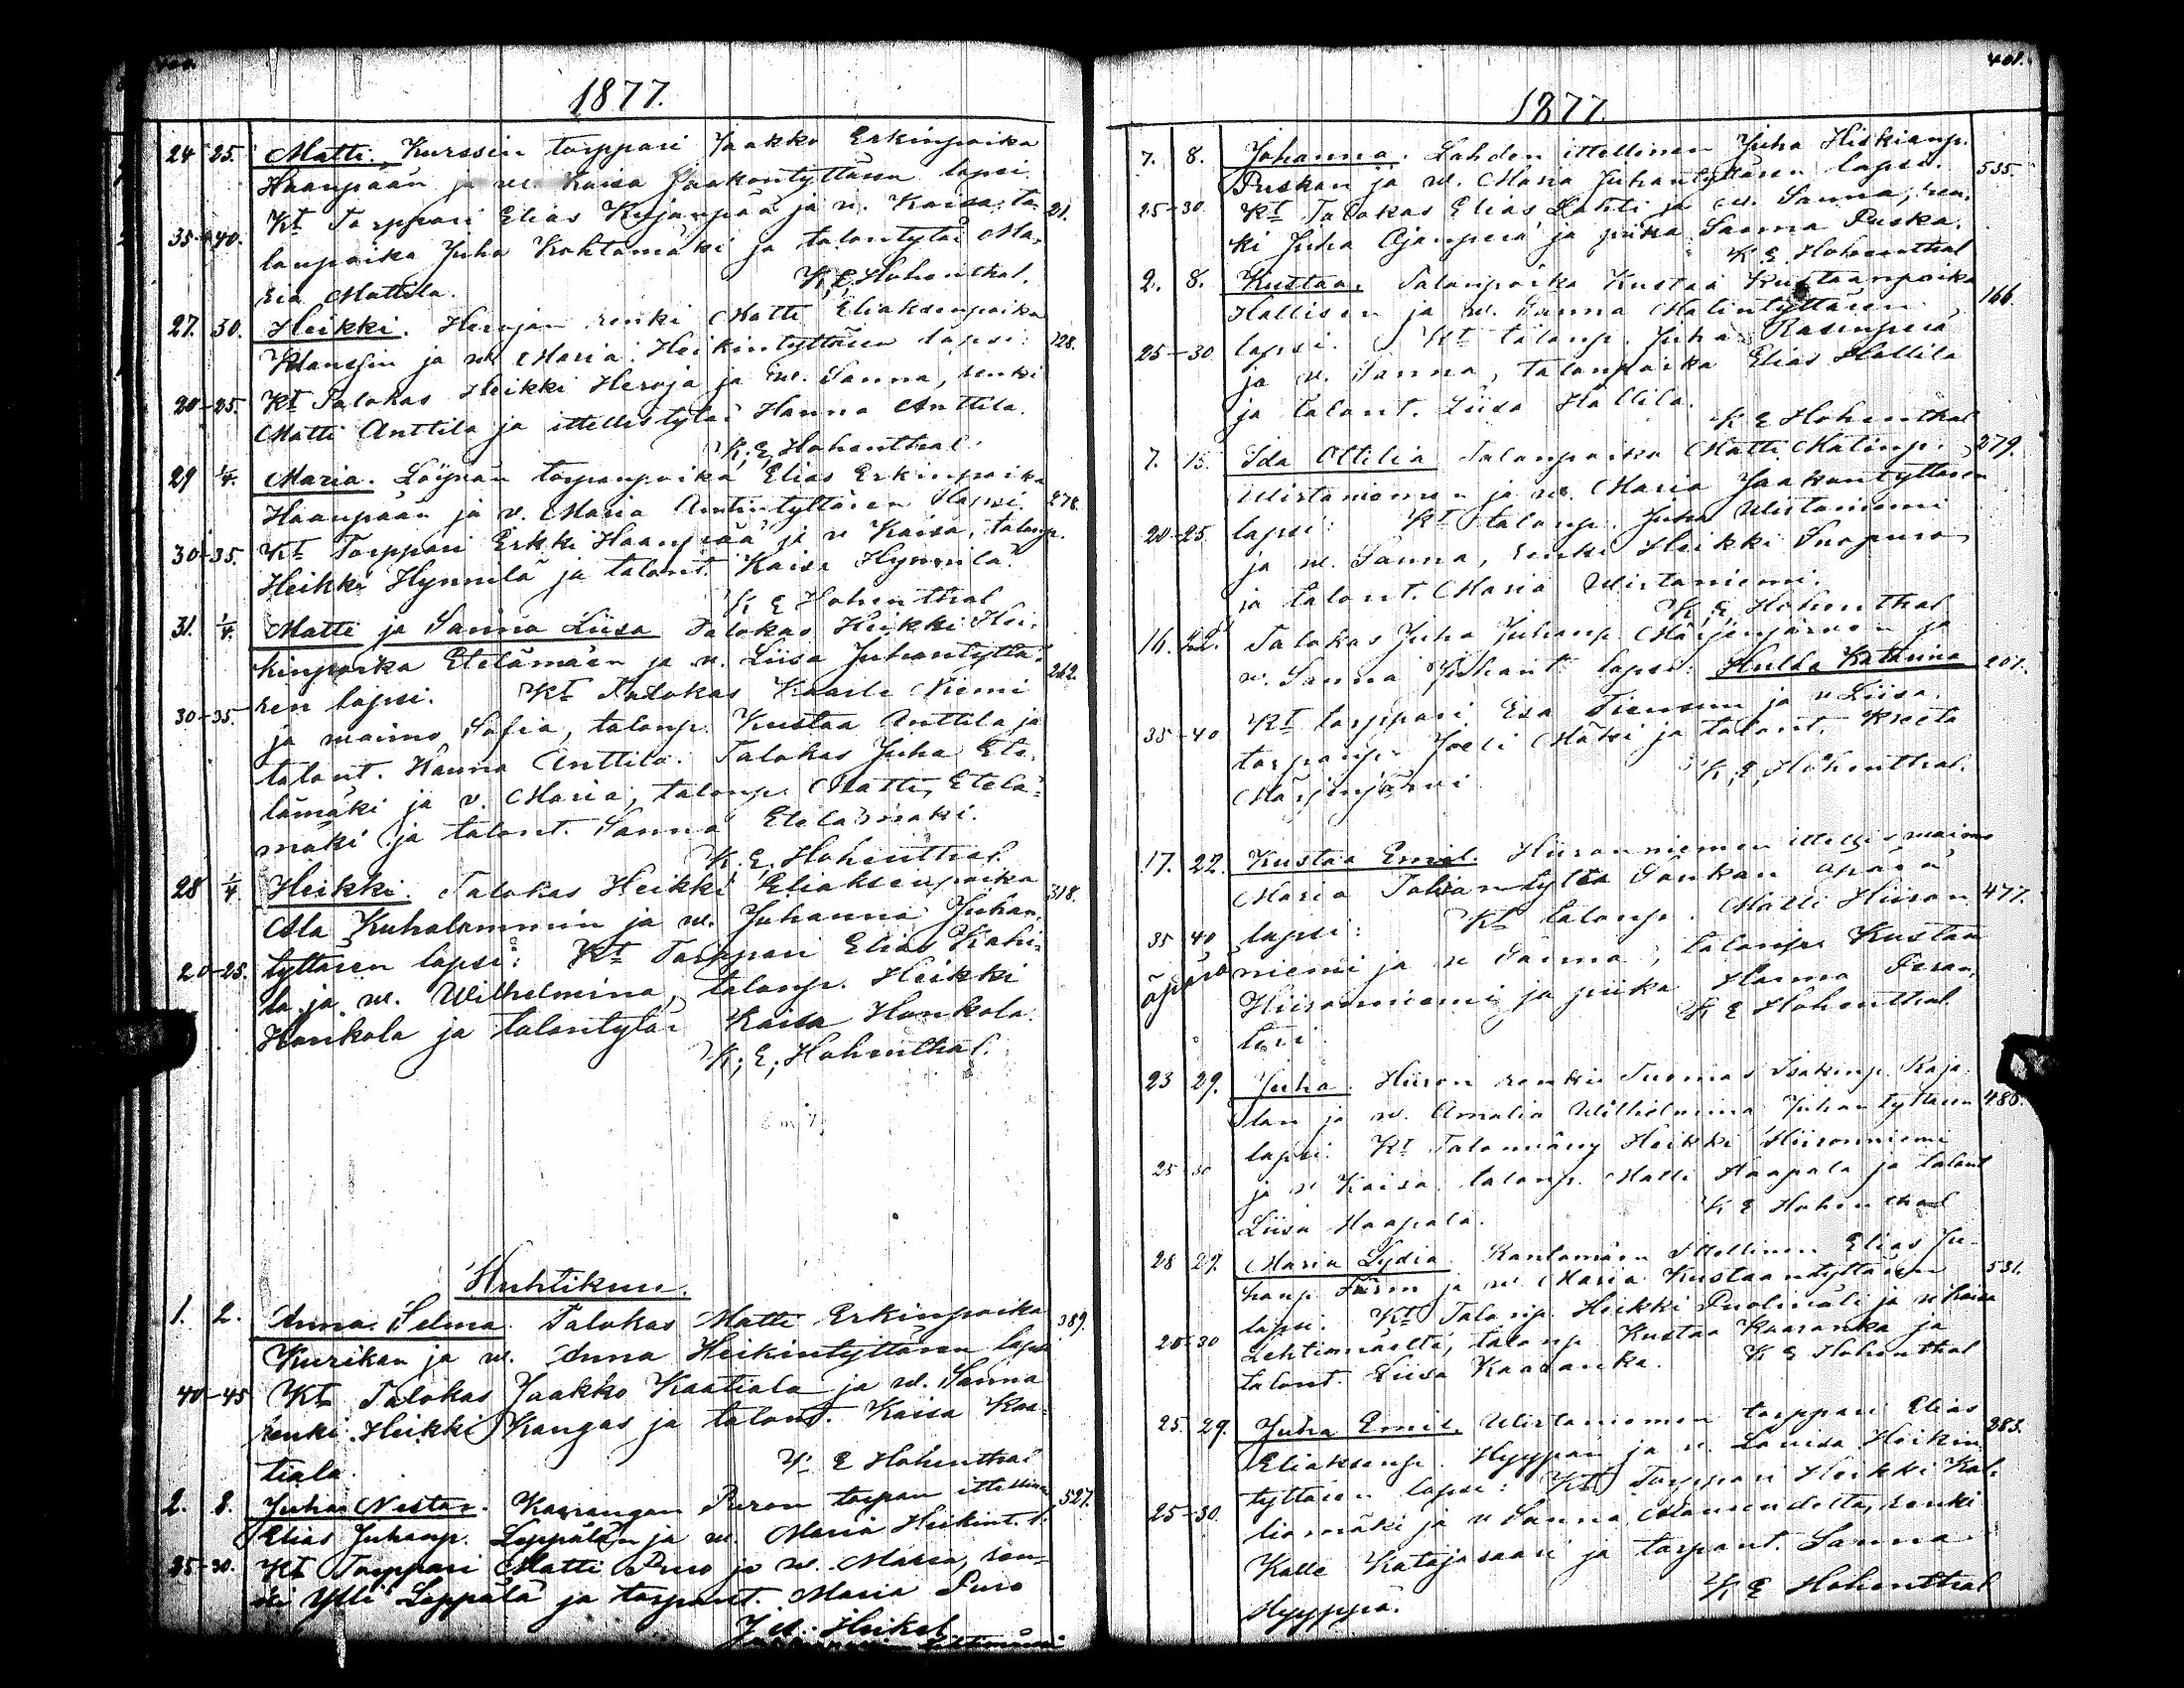 1877.
24 25. Matti. Kurssin torppari Jaakko Erkinpoika
Haanpään ja w. Kaisa Jaakontyttären lapsi.
Kt Torppari Elias Kujanpää ja w. Kaisa, ta- 21.
35-40. lanpoika Juho Kohtamäki ja talontytär Ma-
ria Mattila.
K. E. Hohenthal.
27. 30. Heikki. Heroján renki Matti Eliaksenpoika
ja w. Maria Heikintyttären lapsi: 128.
20-25. Kt Talokas Heikki Heroja ja w. Sanna, renki
Matti Anttila ja ittellistytär Hanna Anttila.
K. E. Hohenthal.
29 1/4. Maria. Löynän torpanpoika Elias Erkinpoika
Haanpään ja v. Maria Antintyttären lapsi. 278.
30-35. Kt Torppari Erkki Haanpää ja w Kaisa, talonp.
Heikki Hynnilä ja talont. Kaisa Hynnilä.
K E Hohenthal
31. 1/4. Matti ja Sanna Liisa Talokas Heikki Hei-
kinpoika Etelämäen ja w. Liisa Juhontyttä-
ren lapsi. Kt Talokas Kaarle Niemi 262.
30-35. ja waimo Sofia, talonp. Kustaa Anttila ja
talont. Hanna Anttila. Talokas Juha Ete-
lämäki ja v. Maria, talonp. Matti Etelä-
mäki ja talont. Sanna Etelämäki.
K. E. Hohenthal.
28 1/4 Heikki. Talokas Heikki Eliaksenpoika 318.
Ala Kuhalammin ja w. Juhanna Juhan-
tyttären lapsi: Kt Torppari Elias Kahi-
20-25. la ja w. Wilhelmina, talonp. Heikki
Honkola ja talontytär Kaisa Honkola.
K; E; Hohenthal.
Huhtikuu.
1. 2. Anna Selma. Talokas Matti Erkinpoika 389.
Kurikan ja w. Anna Heikintyttären lapsi
40-45 Kt Talokas Jaakko Kaatiala ja w. Sanna
renki Heikki Kangas ja talont. Kaisa Kaa-
tiala.
K E Hohenthal
2. 8. Juha Nestor. Puron torpan ittellinen 527.
Elias Juhanp. Leppälän ja w. Maria Heikint.
25-30. Kt Torppari Matti Puro ja w. Maria, ren-
ki Ylli Leppälä ja torpant. Maria Puro
Heikel
401.
1877.
7. 8. Johanna. Lahden ittellinen Juha Hiskianp.
Puskan ja w. Maria Juhantyttären lapsi. 535.
25-30 Kt Talokas Elias Lahti ja w. Sanna, ren-
ki Juha Ojanperä ja piika Sanna Puska.
K E Hohenthal
2. 8. Kustaa. Talanpoika Kustaa Kustaanpoika
Hallisen ja w. Sanna Matintyttären 166.
25-30 lapsi. Kt talonp. Juha Rasinperä
ja w. Sanna, talonpoika Elias Hallila
ja talont. Liisa Hallila.
K E Hohenthal
7. 15. Ida Ottilia Talanpoika Matti Matinp. 279.
Wirtaniemen ja w. Maria Jaakontyttären
20-25. lapsi: Kt talonp. Juha Wirtaniemi
ja w. Sanna, renki Heikki Suopuro
ja talont. Maria Wirtaniemi.
K. E. Hohenthal
16. 22. Talokas Juha Juhanp. Märjenjärwen ja
w. Sanna Juhant. lapsi: Hulda Katarina 207.
35-40 Kt torppari Esa Tiensuu ja w Liisa,
torpanp. Joeli Mäki ja talont. Kreeta
Märjenjärwi
K. E. Hohenthal.
17. 22. Kustaa Emil. Hiironniemen ittellis waimo
Maria Sankan äpärä
lapsi: Kt talonp. Matti Hiiron- 477.
35 40 niemi ja w Sanna, talonp. Kustaa
äpärä Hiironniemi ja piika Hanna Peran-
teri.
K E Hohenthal
23 29. Juha. Hiiron renki Tuomas Isakinp. Raja-
lan ja w. Amalia Wilhelmina Juhantyttären 488.
lapsi. Kt Talonwäwy Heikki Hiironniemi
25 30 ja w Kaisa talonp. Matti Haapala ja talont
Liisa Haapala.
K E Hohenthal
28 29. Maria Lydia Rantamäen Ittellinen Elias Ju-
hanp. ja w. Maria Kustaantyttären 531.
lapsi. Kt Talonp. Heikki Puolimäti ja w Kaisa
25-30 Lehtimäeltä, talonp. Kustaa Kaaranka ja
talont. Liisa Kaaranka.
K E Hohenthal
25. 29. Juha Emil. Wirtaniemen torppari Elias
Eliaksenp. Hyypän ja w. Lowisa Heikin- 283.
tyttären lapsi: Kt Torppari Heikki Kal-
25-30. liomäki ja w Sanna renki
Kalle Katajasaari ja torpant. Sanna
Hyyppä.
K E Hohenthal